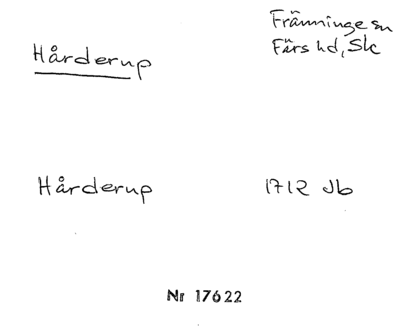 Hårderup
Främminge sn
Färs hd, Sk
Hårderup 1712 Jb
Nr 17622